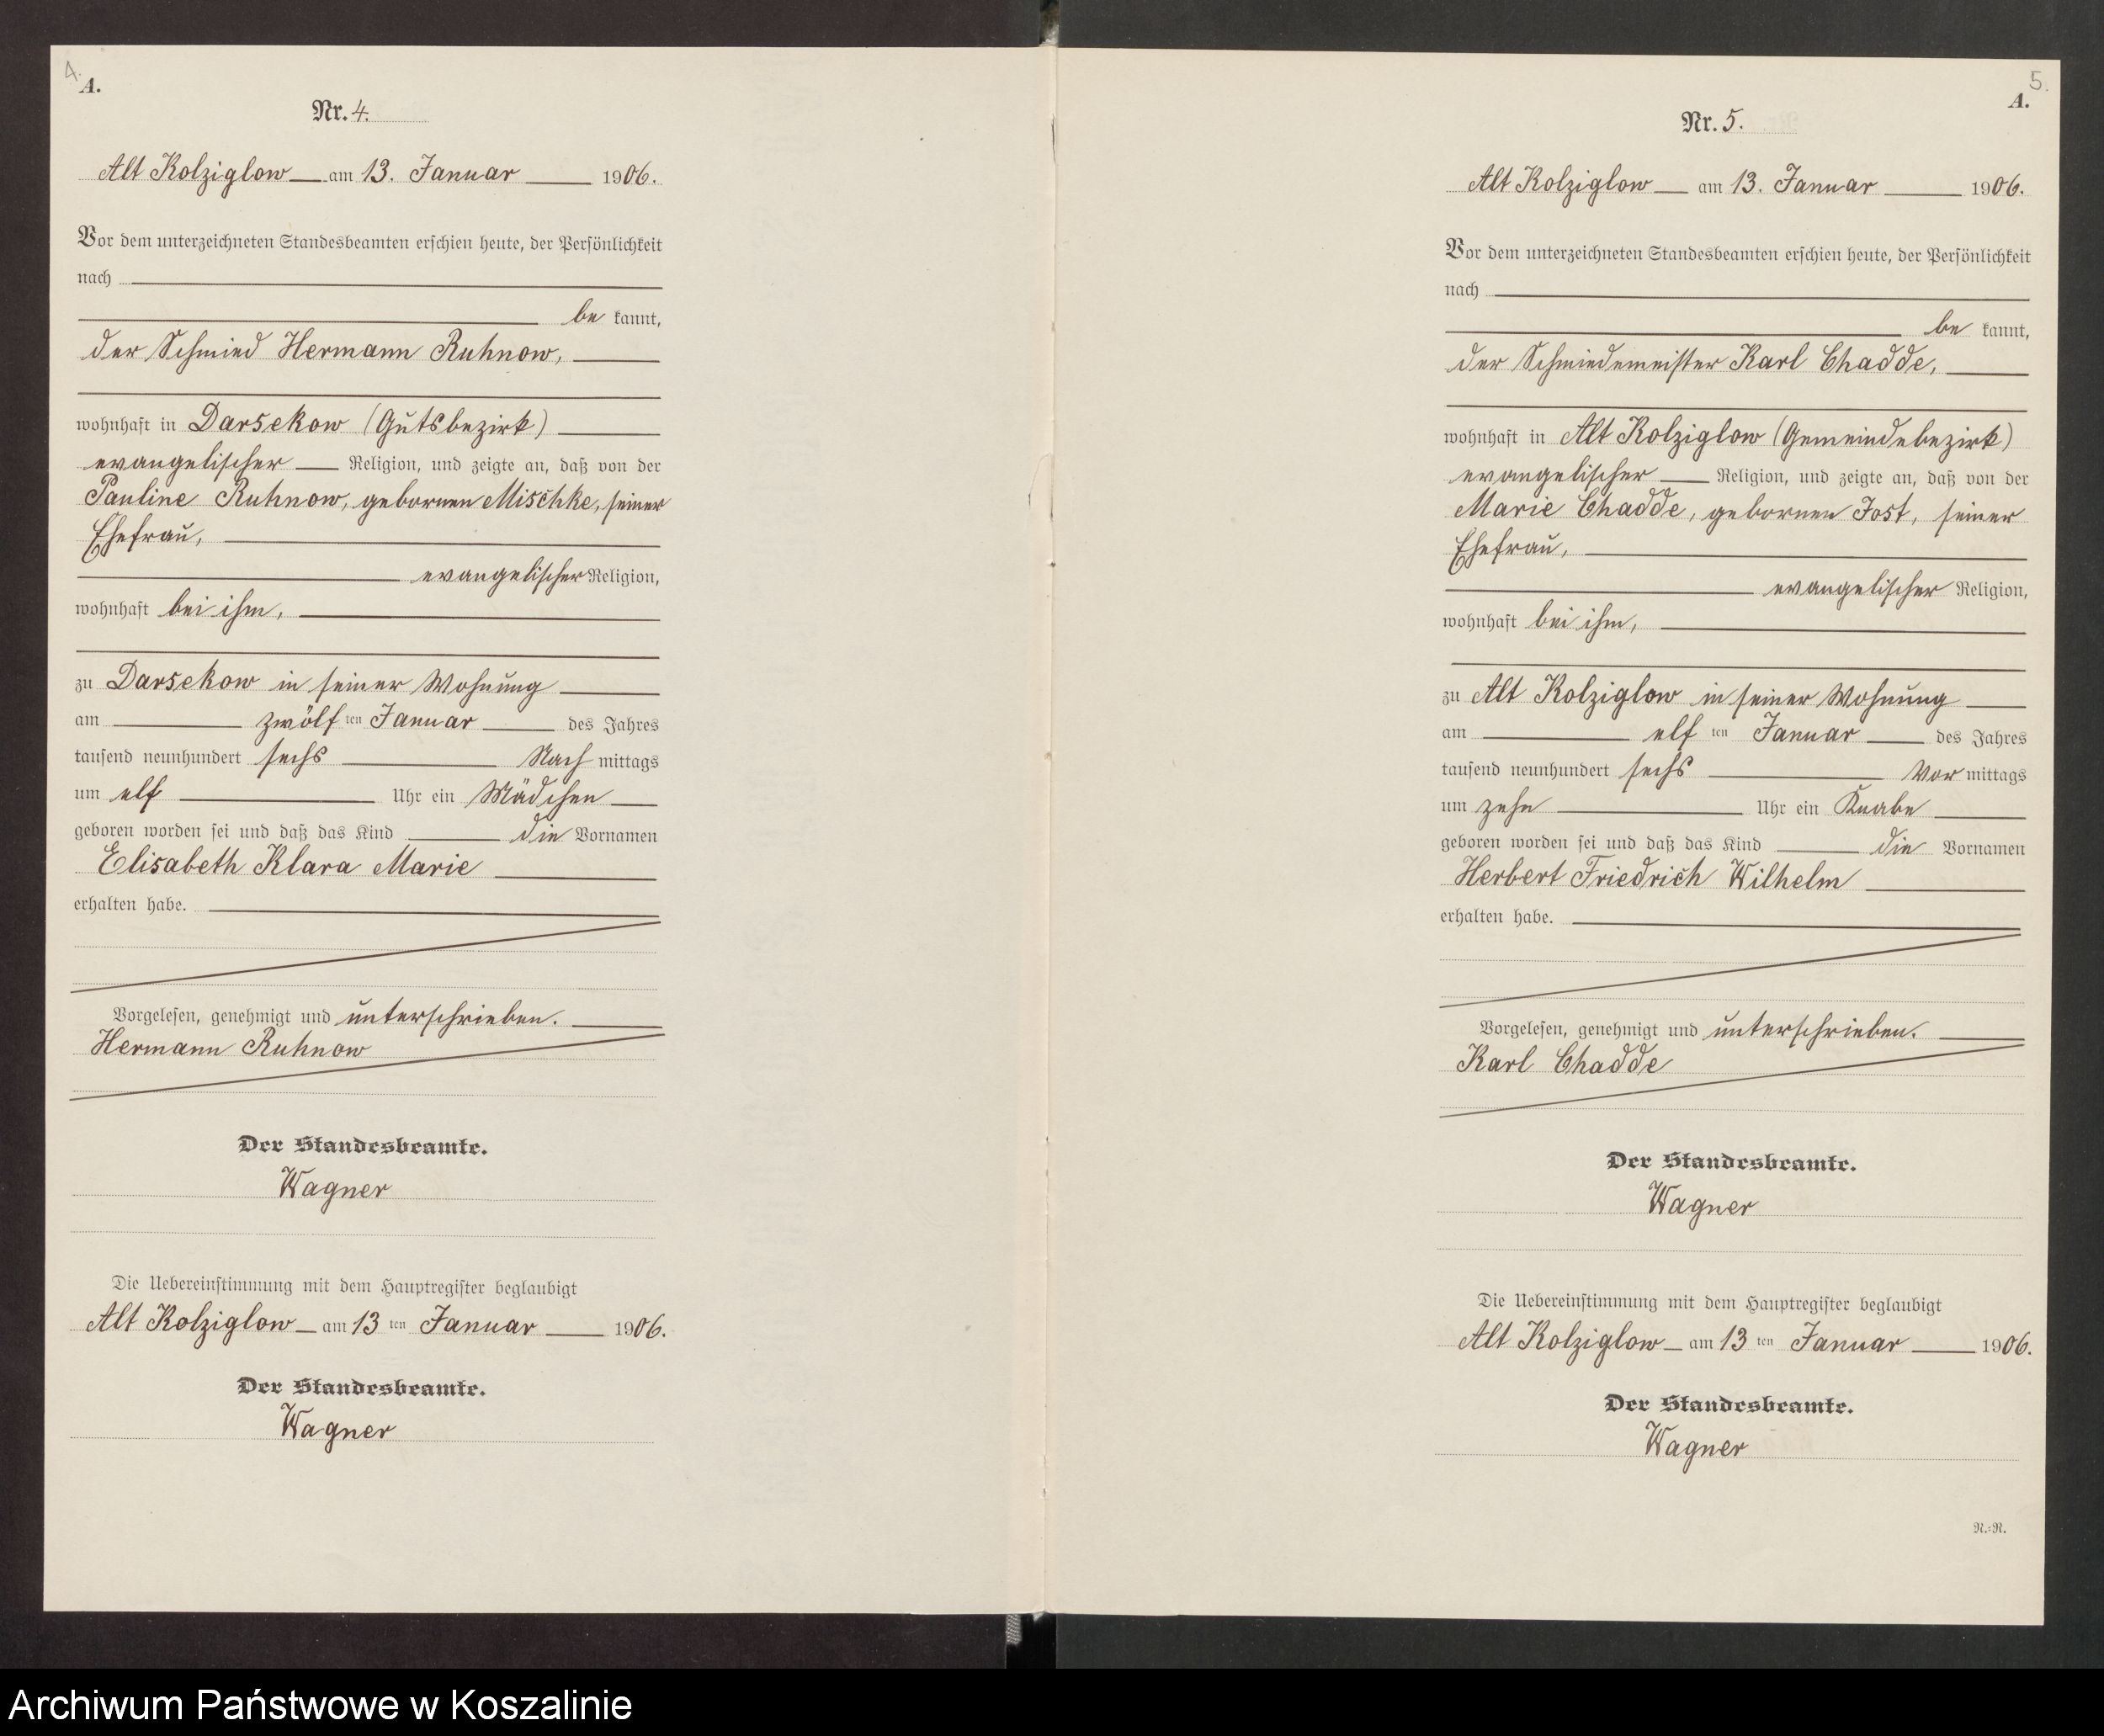 4.
A.
Nr. 4.
Alt Kolziglow am 13. Januar 1906.
Vor dem unterzeichneten Standesbeamten erschien heute, der Persönlichkeit
nach
be kannt,
der Schmied Hermann Ruhnow,
wohnhaft in Darsekow (Gutsbezirk)
evangelischer Religion, und zeigte an, daß von der
Pauline Ruhnow, gebornen Mischke, seiner
Ehefrau,
evangelischer Religion,
wohnhaft bei ihm,
zu Darsekow in seiner Wohnung
am zwölf ten Januar des Jahres
tausend neunhundert sechs Nach mittags
um elf Uhr ein Mädchen
geboren worden sei und daß das Kind die Vornamen
Elisabeth Klara Marie
erhalten habe.
Vorgelesen, genehmigt und unterschrieben.
Hermann Ruhnow
Der Standesbeamte.
Wagner
Die Uebereinstimmung mit dem Hauptregister beglaubigt
Alt Kolziglow am 13 ten Januar 1906.
Der Standesbeamte.
Wagner
5.
A.
Nr. 5.
Alt Kolziglow am 13. Januar 1906.
Vor dem unterzeichneten Standesbeamten erschien heute, der Persönlichkeit
nach
be kannt,
der Schmiedemeister Karl Chadde,
wohnhaft in Alt Kolziglow (Gemeindebezirk)
evangelischer Religion, und zeigte an, daß von der
Marie Chadde, gebornen Jost, seiner
Ehefrau,
evangelischer Religion,
wohnhaft bei ihm,
zu Alt Kolziglow in seiner Wohnung
am elf ten Januar des Jahres
tausend neunhundert sechs Vor mittags
um zehn Uhr ein Knabe
geboren worden sei und daß das Kind die Vornamen
Herbert Friedrich Wilhelm
erhalten habe.
Vorgelesen, genehmigt und unterschrieben.
Karl Chadde
Der Standesbeamte.
Wagner
Die Uebereinstimmung mit dem Hauptregister beglaubigt
Alt Kolziglow am 13 ten Januar 1906.
Der Standesbeamte.
Wagner
N.=R.
Archiwum Państwowe w Koszalinie